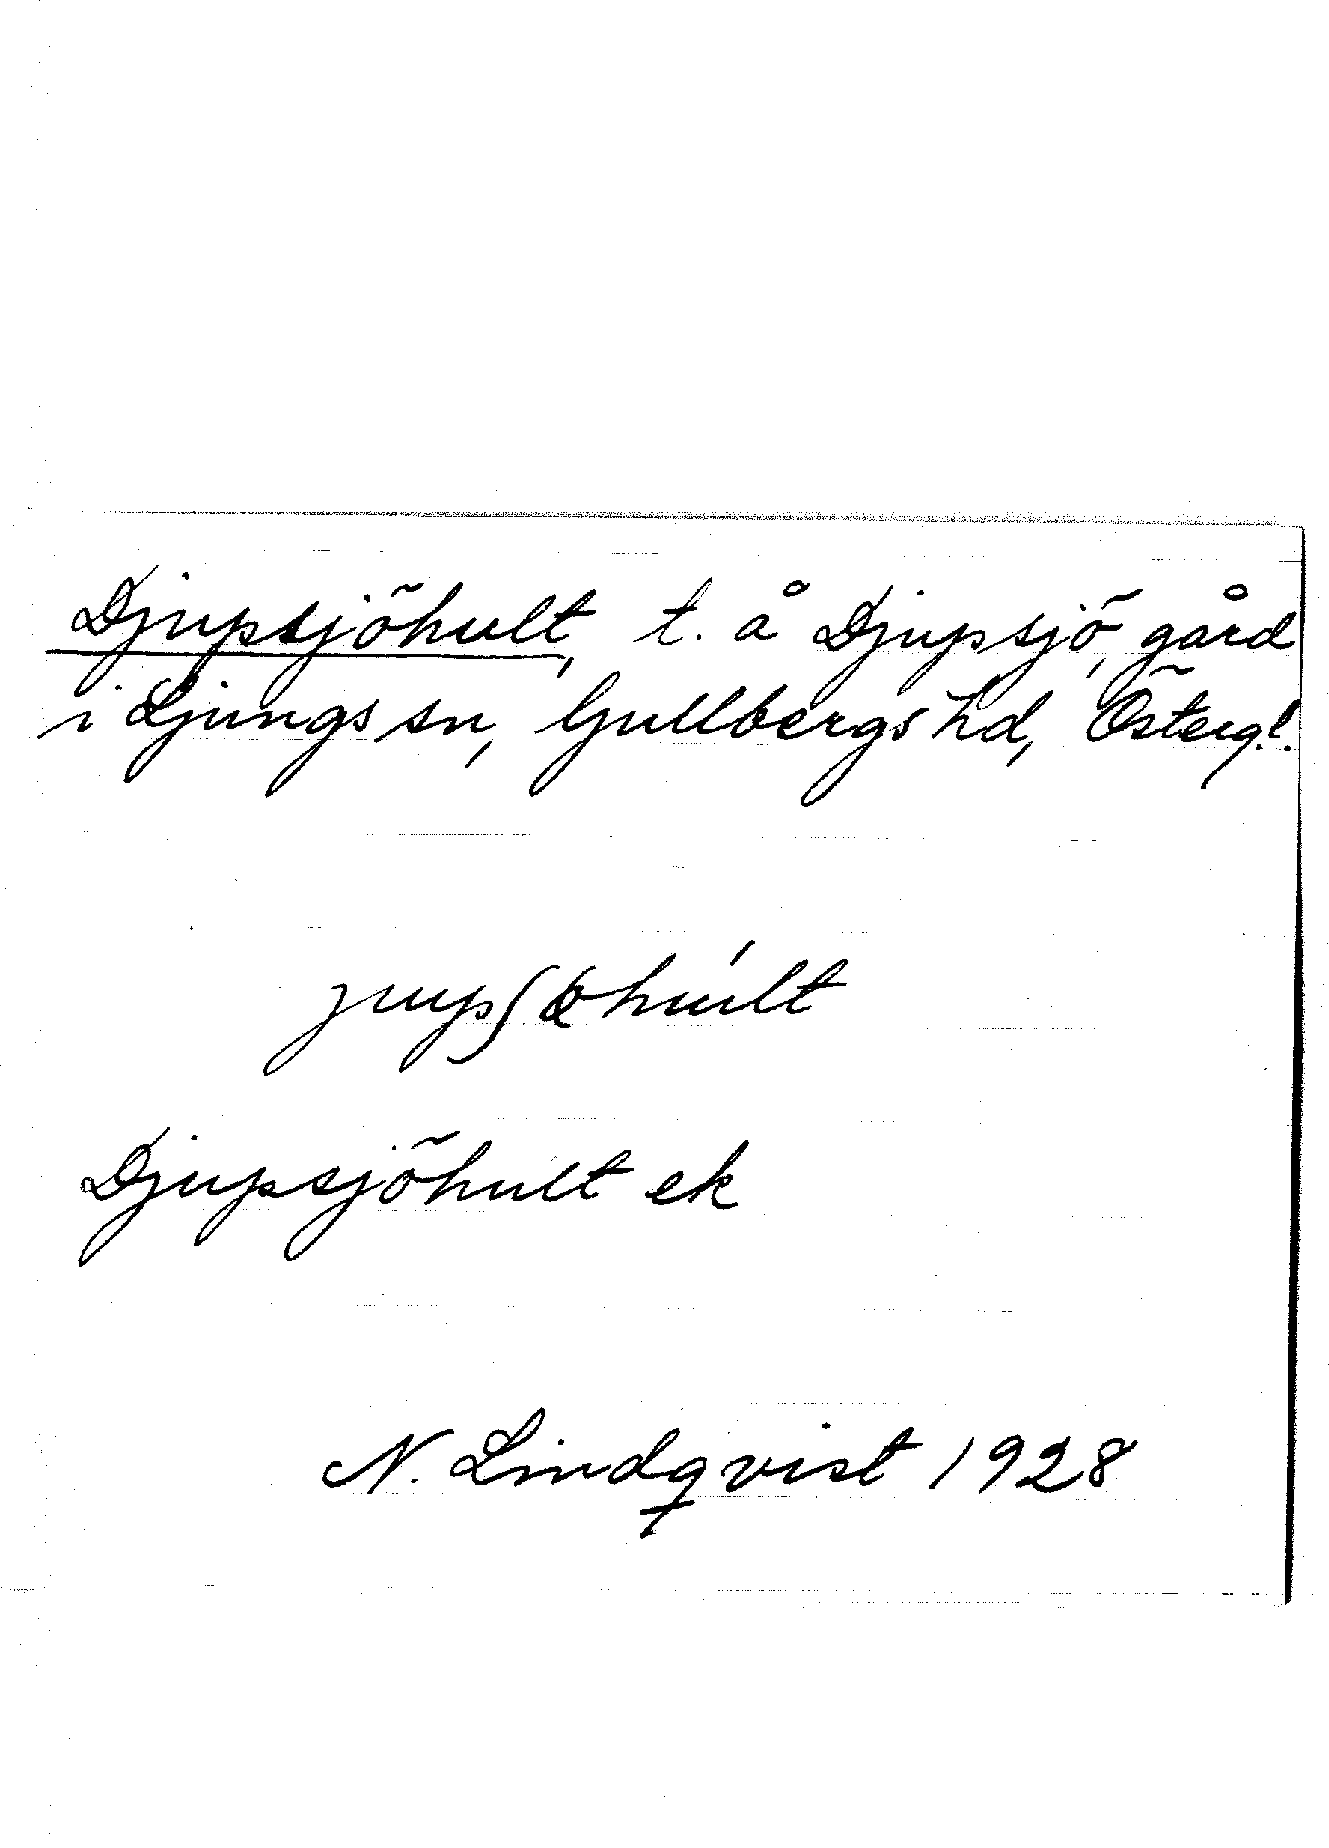 Djupsjöhult, t. å Djupsjö, gård
i Ljungs sn, Gullbergs hd, Östergl.
Djupsjöhult ek
N. Lindqvist 1928